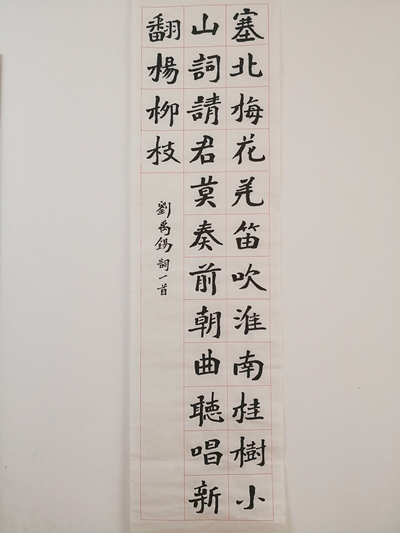 塞北梅花羌笛吹淮南桂樹小
山詞請君莫奏前朝曲聽唱新
翻楊柳枝
劉禹錫詞一首